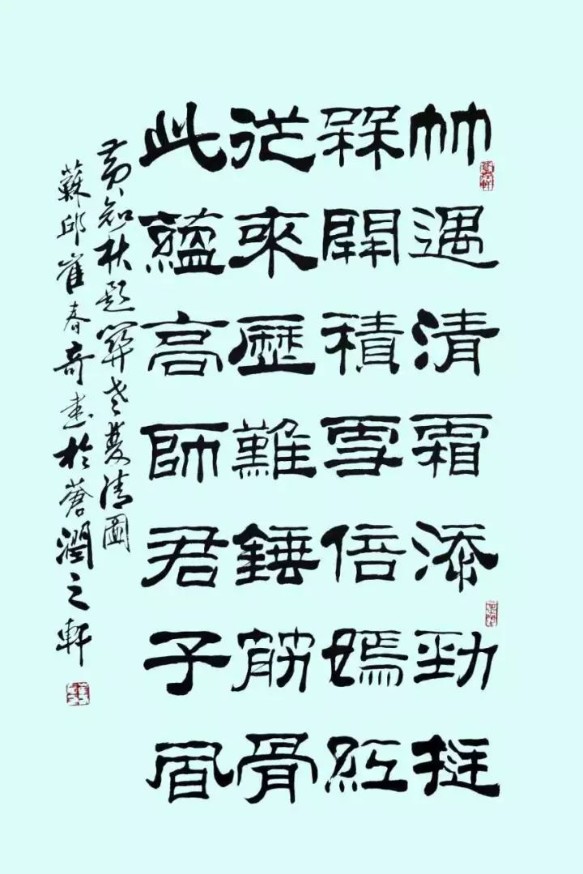 竹遇清霜添勁挺
槑開積雪倍嫣紅
從來歷難錘筋骨
此蘊高師君子風
黄知秋題老清圖
蘇邱崔春奇書於蒼潤之軒